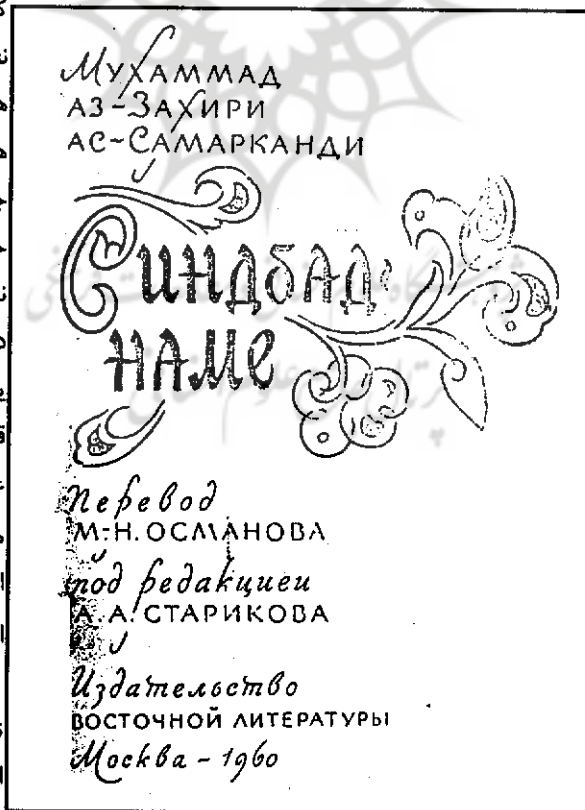 Мухаммад
аз-Захири
ас-Самарканди
Синдбад-
наме
Перевод
М.-Н. ОСМАНОВА
под редакцией
А. А. СТАРИКОВА
Издательство
ВОСТОЧНОЙ ЛИТЕРАТУРЫ
Москва - 1960